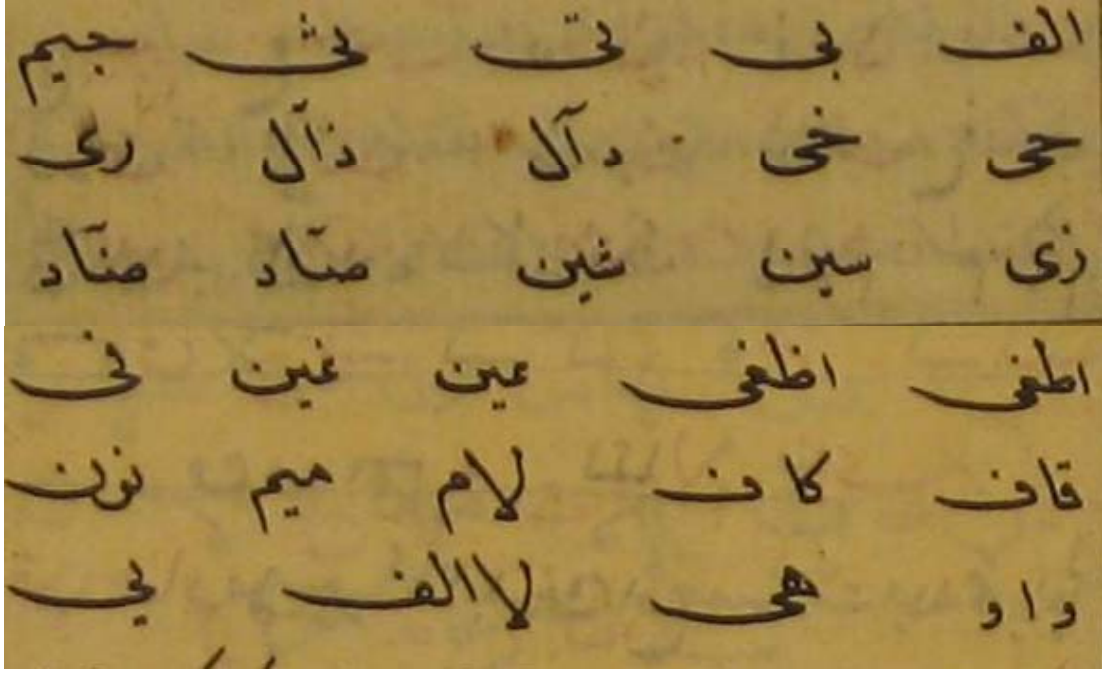 الف بى تى ثى جيم
حى خى دآل ذآل رى
زى سين شين صآد ضآد
اطغى اظغى عين غين فى
قاف كاف لام ميم نون
واو هى لاالف يى